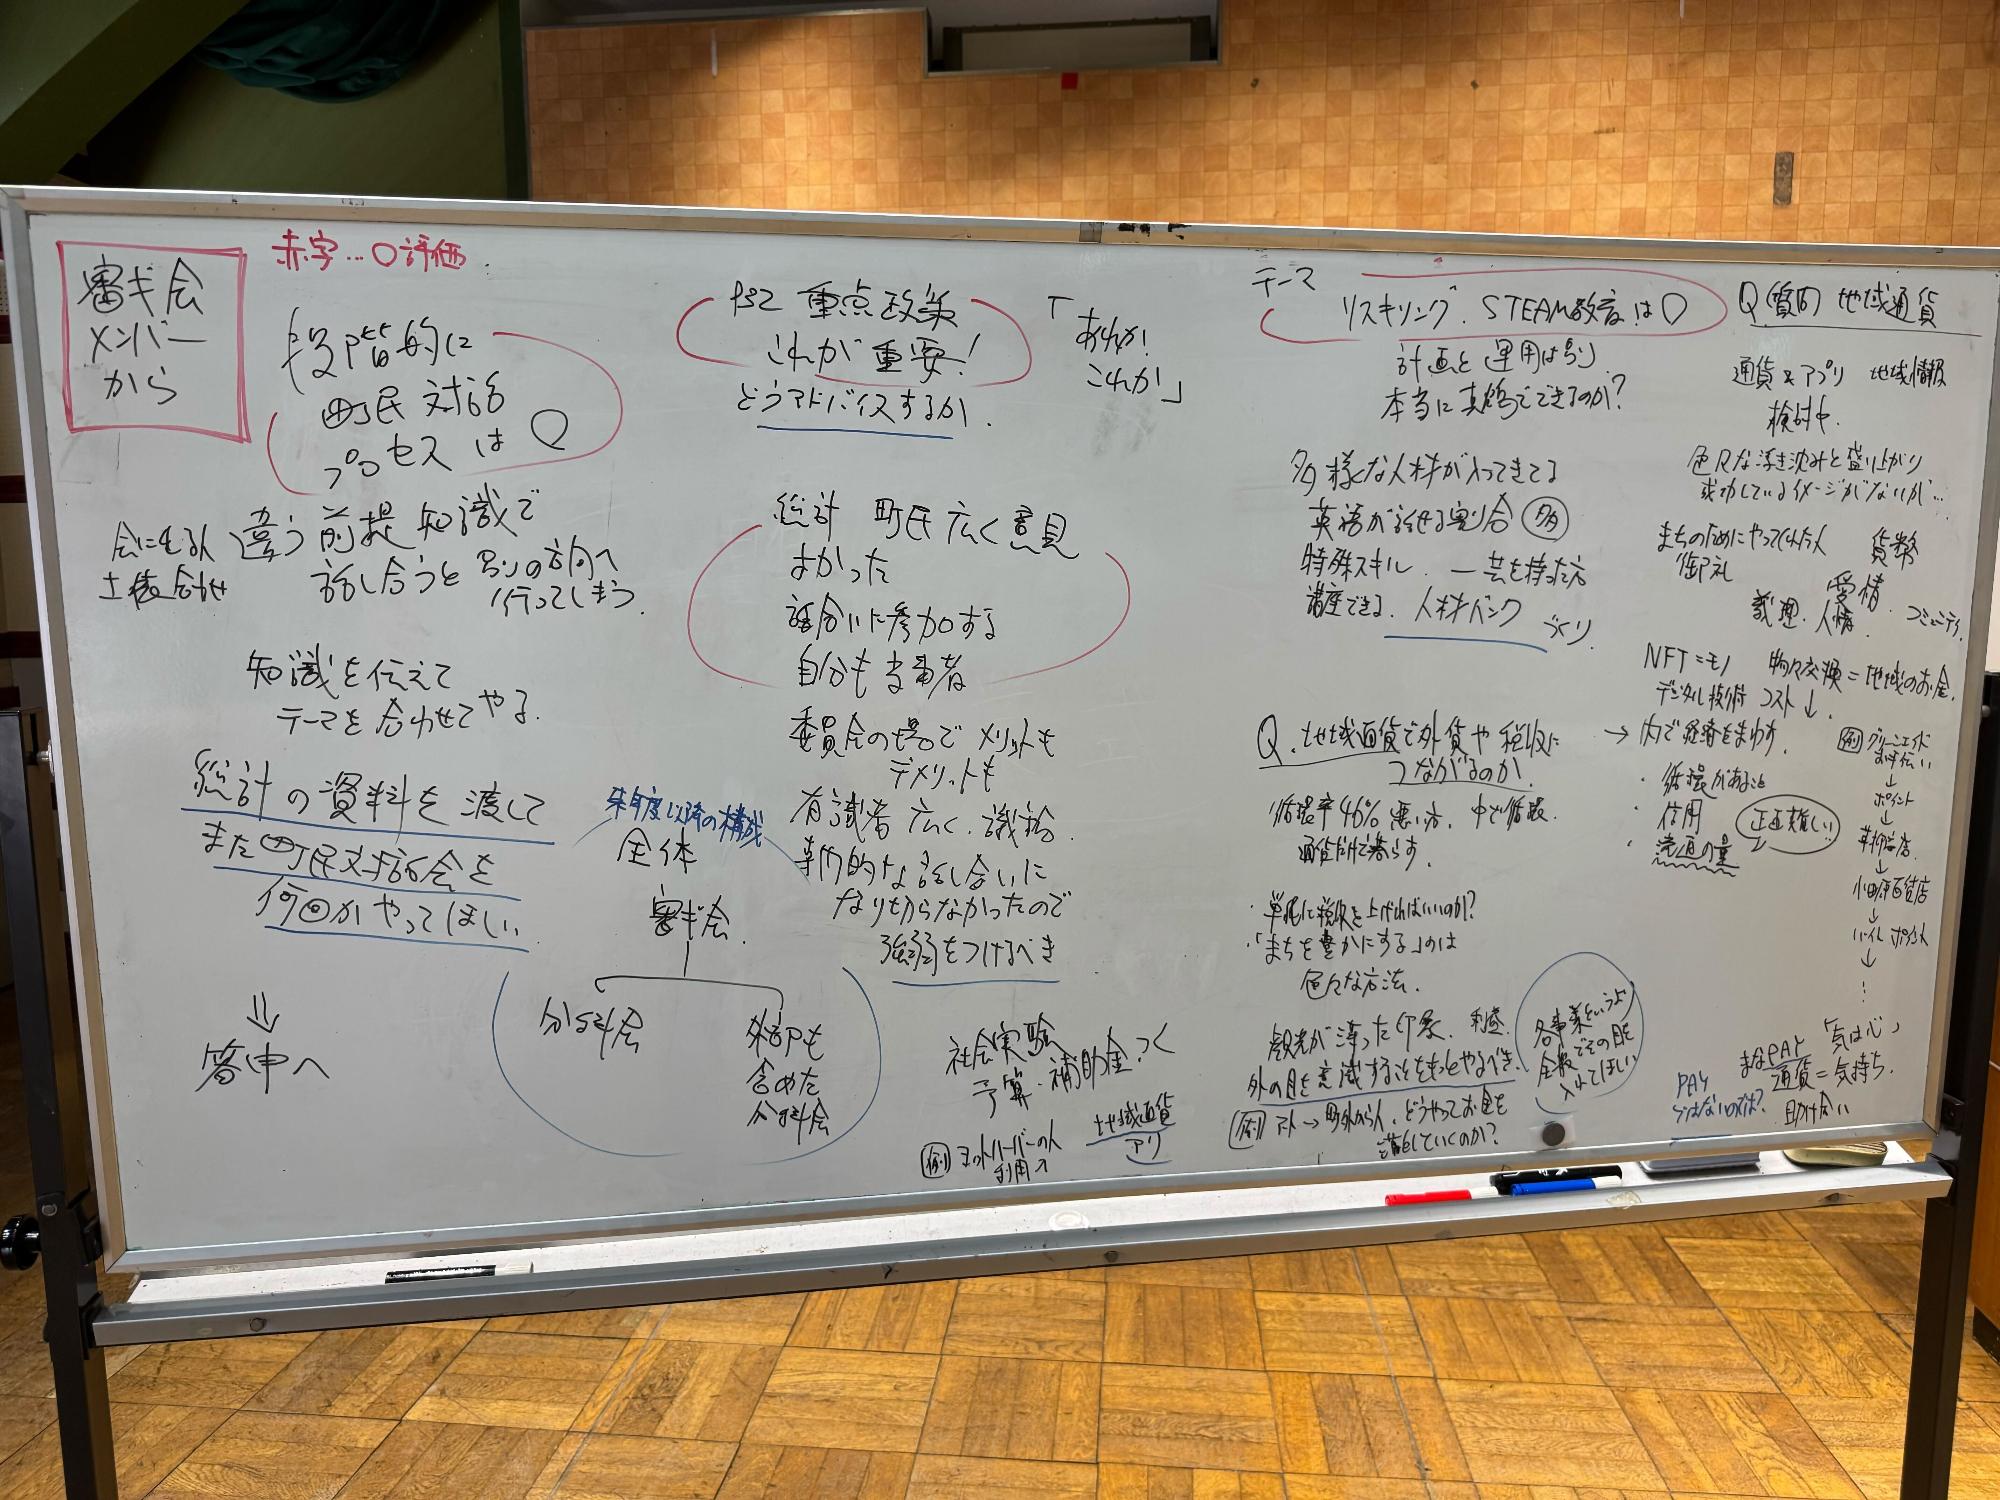 審ギ会
メンバー
から
赤字…○評価
段階的に
町民対話
プロセスは○
会に出る人
土俵合せ
違う前提知識で
話し合うと別の方向へ
行ってしまう.
知識を伝えて
テーマを合わせてやる.
総計の資料を渡して
また町民対話会を
何回かやってほしい.
⇓
答申へ
P52 重点政策
これが重要!
どうアドバイスするか.
「あれか!
これか」
総計 町民広く意見
よかった
話合いに参加する
自分も当事者
委員会の場でメリットも
デメリットも
有識者 広く.議論.
専門的な話し合いに
なり切らなかったので
強弱をつけるべき
来年度以降の構成
全体
審ギ会.
分科会
外部も
含めた
分科会
社会実験
予算・補助金つく
地域通貨
アリ
例 ヨットハーバーの人
利用→
テーマ
リスキリング. STEAM教育は○
計画と運用は別
本当に真鶴でできるのか?
多様な人材が入ってきてる
英語が話せる割合 多
特殊スキル. 一芸を持った方
講座できる. 人材バンク づくり
Q. 地域通貨で外貨や税収に
つながるのか.
循環率46% 悪い方. 中で循環.
通貨だけで暮らす.
・単純に税収を上げればいいのか?
・「まちを豊かにする」のは
色々な方法.
観光が滞った印象. 利益.
外の目を意識することをもっとやるべき.
例 アート→町外から人. どうやってお金を
落としていくのか?
各事業というより
全般でその目を
入れてほしい
Q(質問) 地域通貨
通貨&アプリ 地域情報
検討中.
色々な浮き沈みと盛り上がり
成功しているイメージがないが…
まちのためにやってくれた人
御礼
貨幣
愛情.
義理. 人情. コミュニティ.
NFT=モノ 物々交換=地域のお金.
デジタル技術 コスト↓.
→内で経済をまわす.
・循環があること
・信用
・流通の量
正直難しい
例 グリーンエイド
お手伝い
↓
ポイント
↓
草柳商店.
↓
小田原百貨店
↓
ポイント
↓
⋮
「気は心」
まなPAY
通貨=気持ち.
助け合い
PAY
ではないのでは?